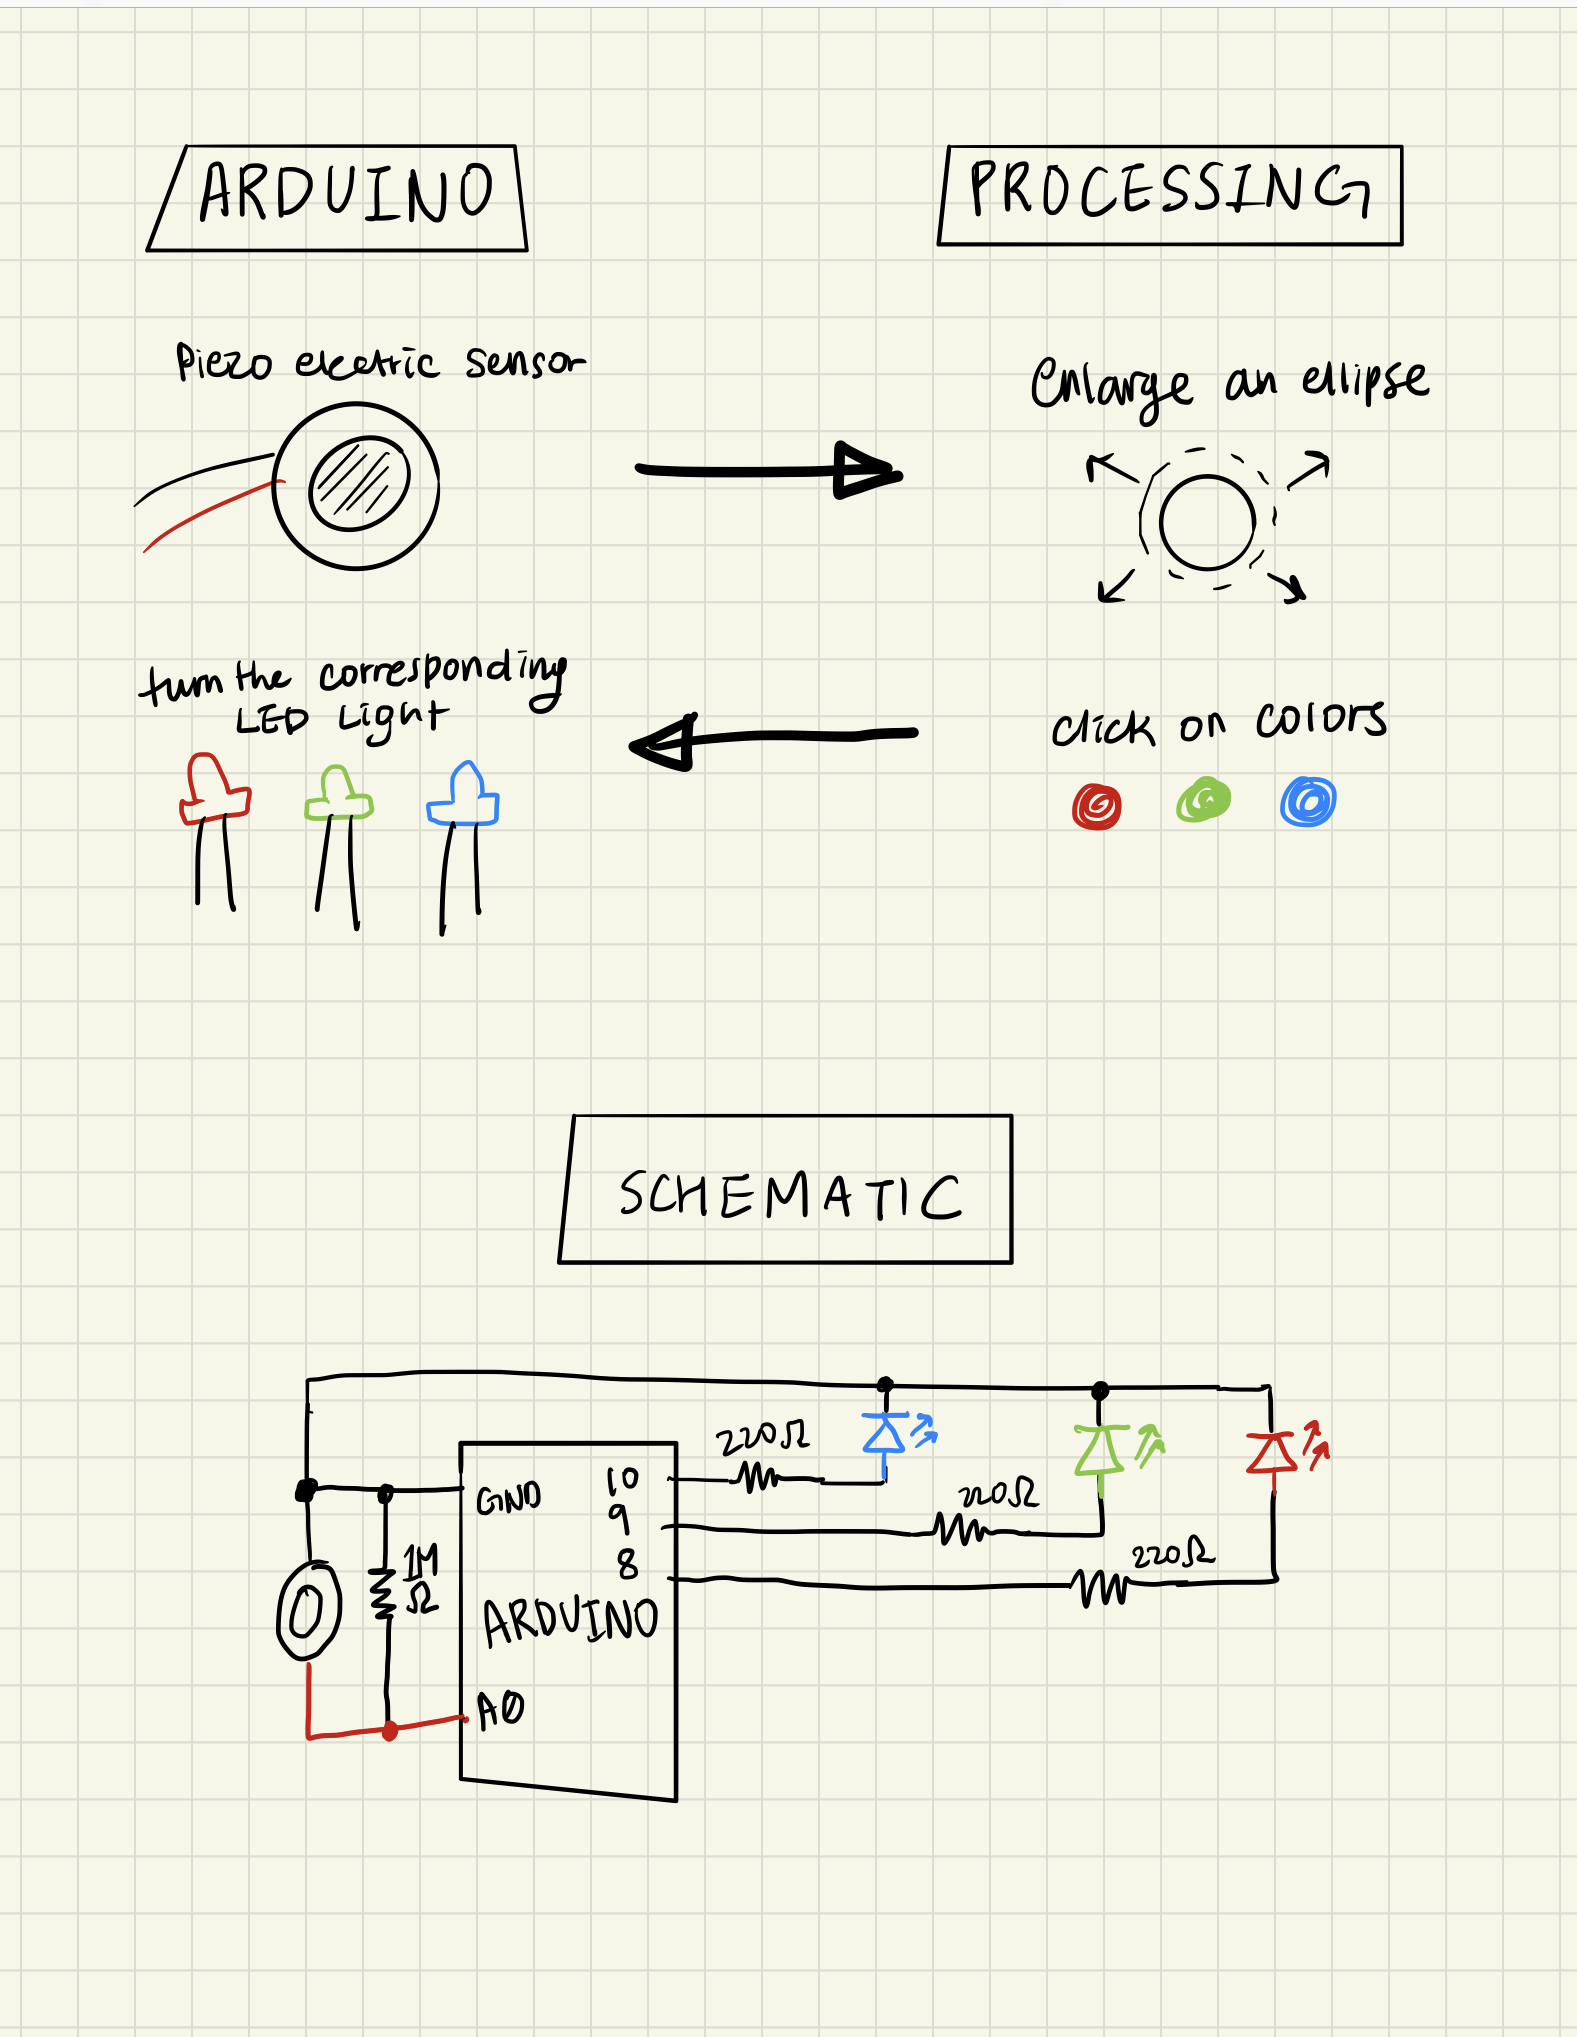 ARDUINO
PROCESSING
Piezo electric sensor
Enlarge an ellipse
turn the corresponding
LED Light
click on colors
SCHEMATIC
220Ω
10
GND
9
220Ω
8
1M
Ω
220Ω
ARDUINO
A0